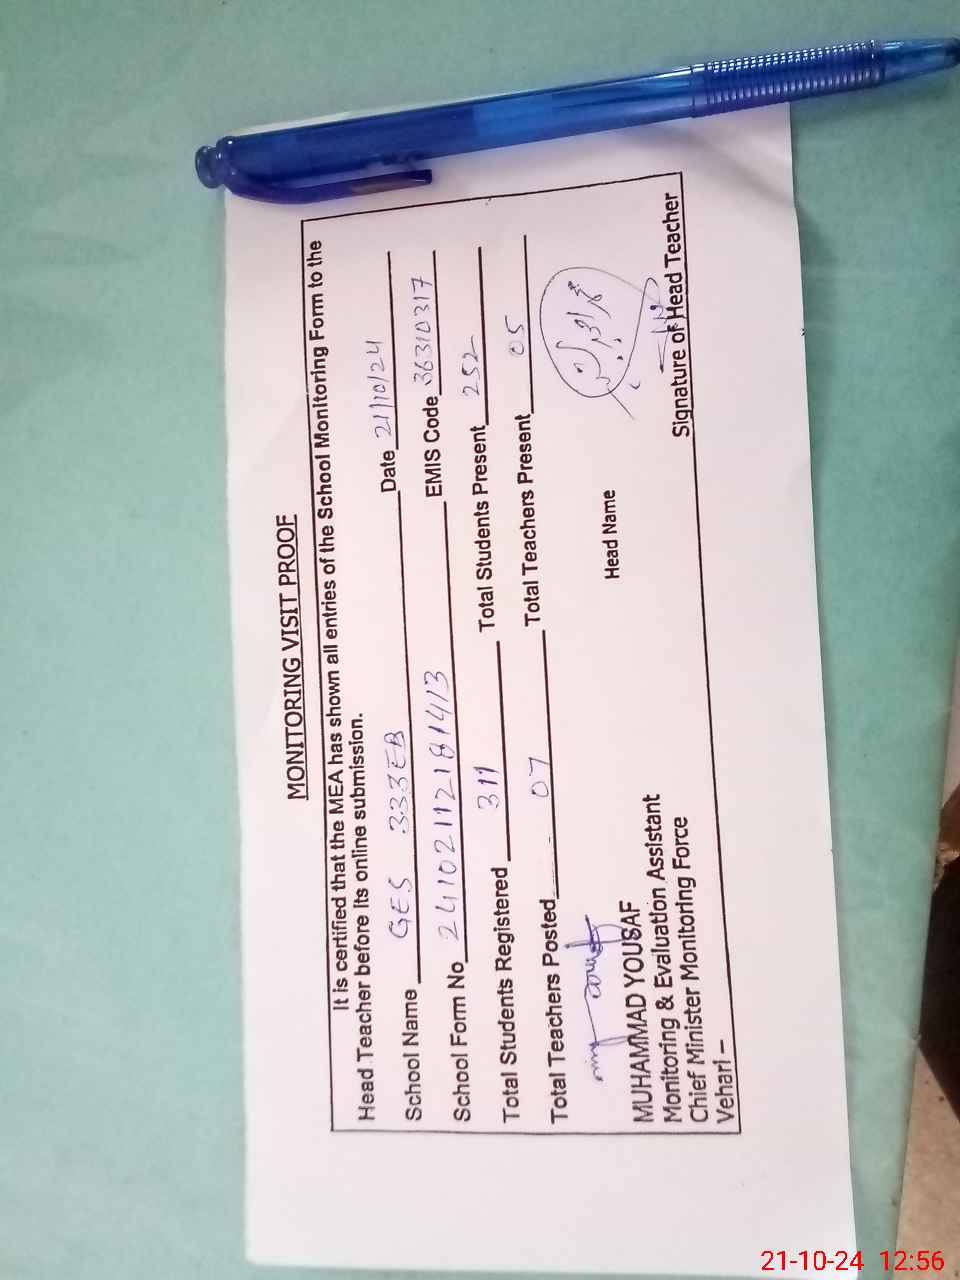 MONITORING VISIT PROOF
It is certified that the MEA has shown all entries of the School Monitoring Form to the
Head Teacher before its online submission.
School Name GES 333EB Date 21/10/24
School Form No 24102112181413 EMIS Code 36310317
Total Students Registered 311 Total Students Present 252
Total Teachers Posted 07 Total Teachers Present 05
MUHAMMAD YOUSAF
Head Name
Monitoring & Evaluation Assistant
Chief Minister Monitoring Force
Signature of Head Teacher
Vehari –
21-10-24 12:56